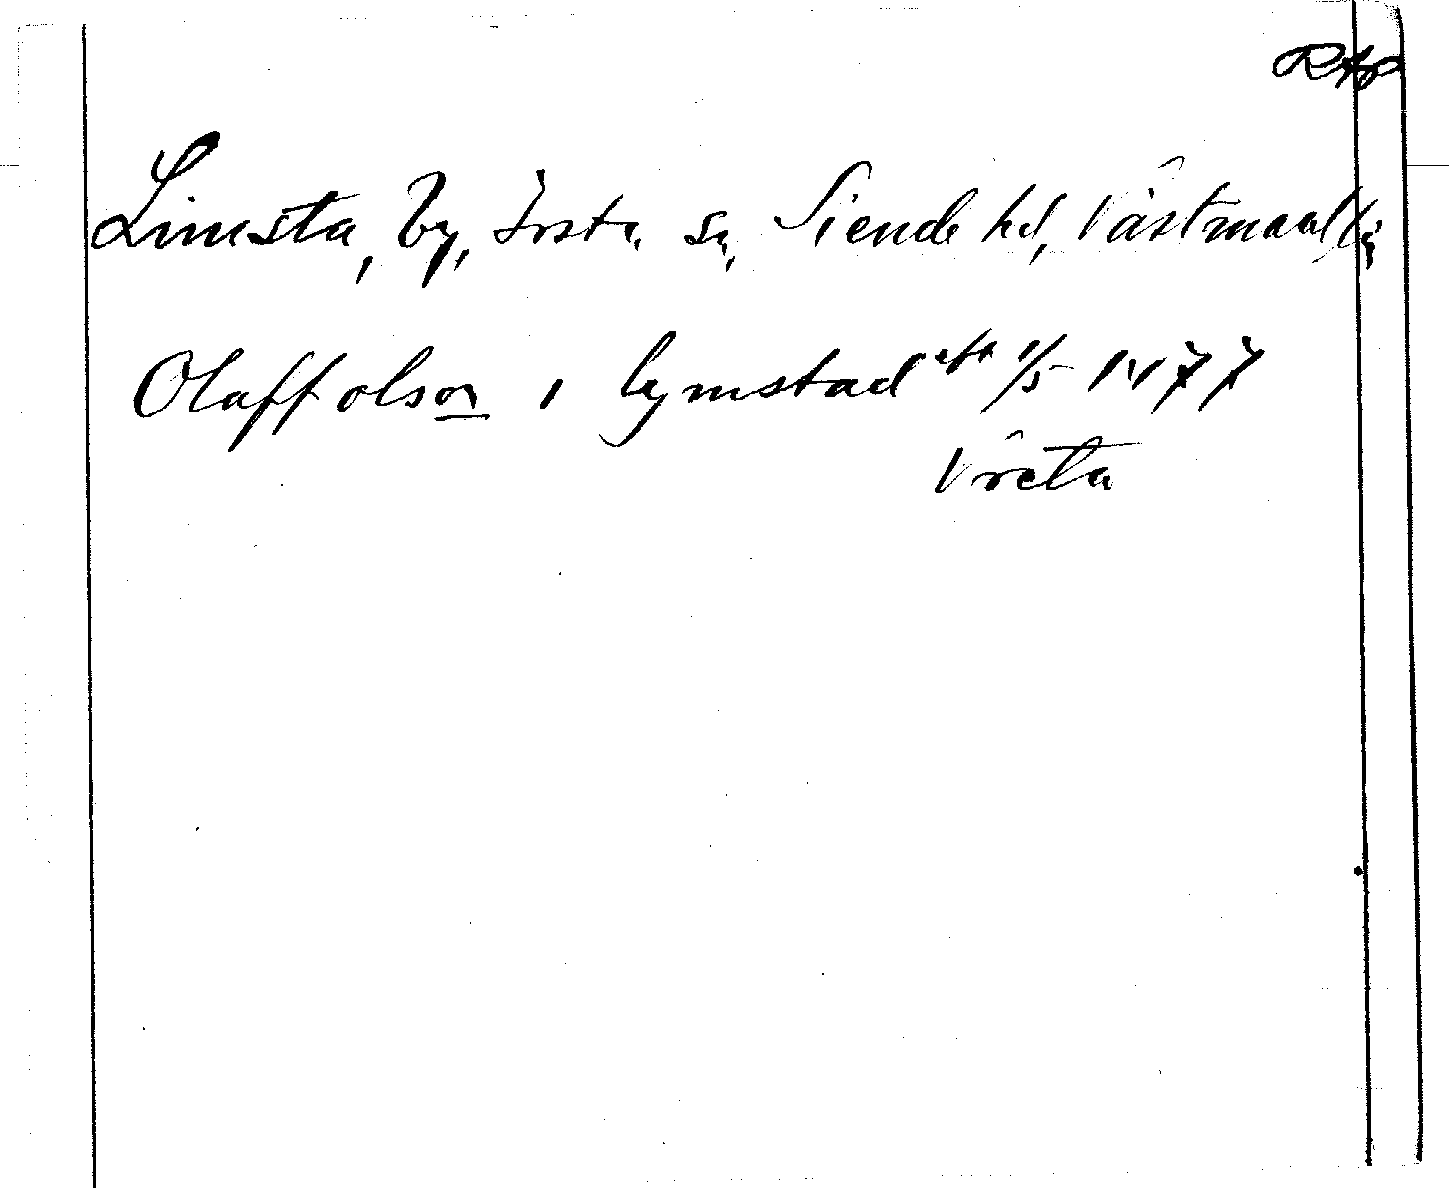 RAP
Limsta, by, Irsta sn, Siende hd, Västmanl
Olaff olson i lymstad aft 1/5 1477
Vreta